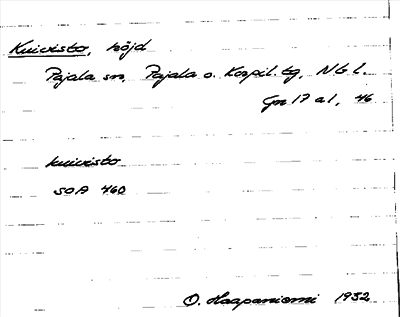 Kuivisto, höjd
Pajala sn, Pajala o. Korpil. tg, Nb l.
Gn 17 a 1, 46
kuivisto
SOA 460
O. Haapaniemi 1932